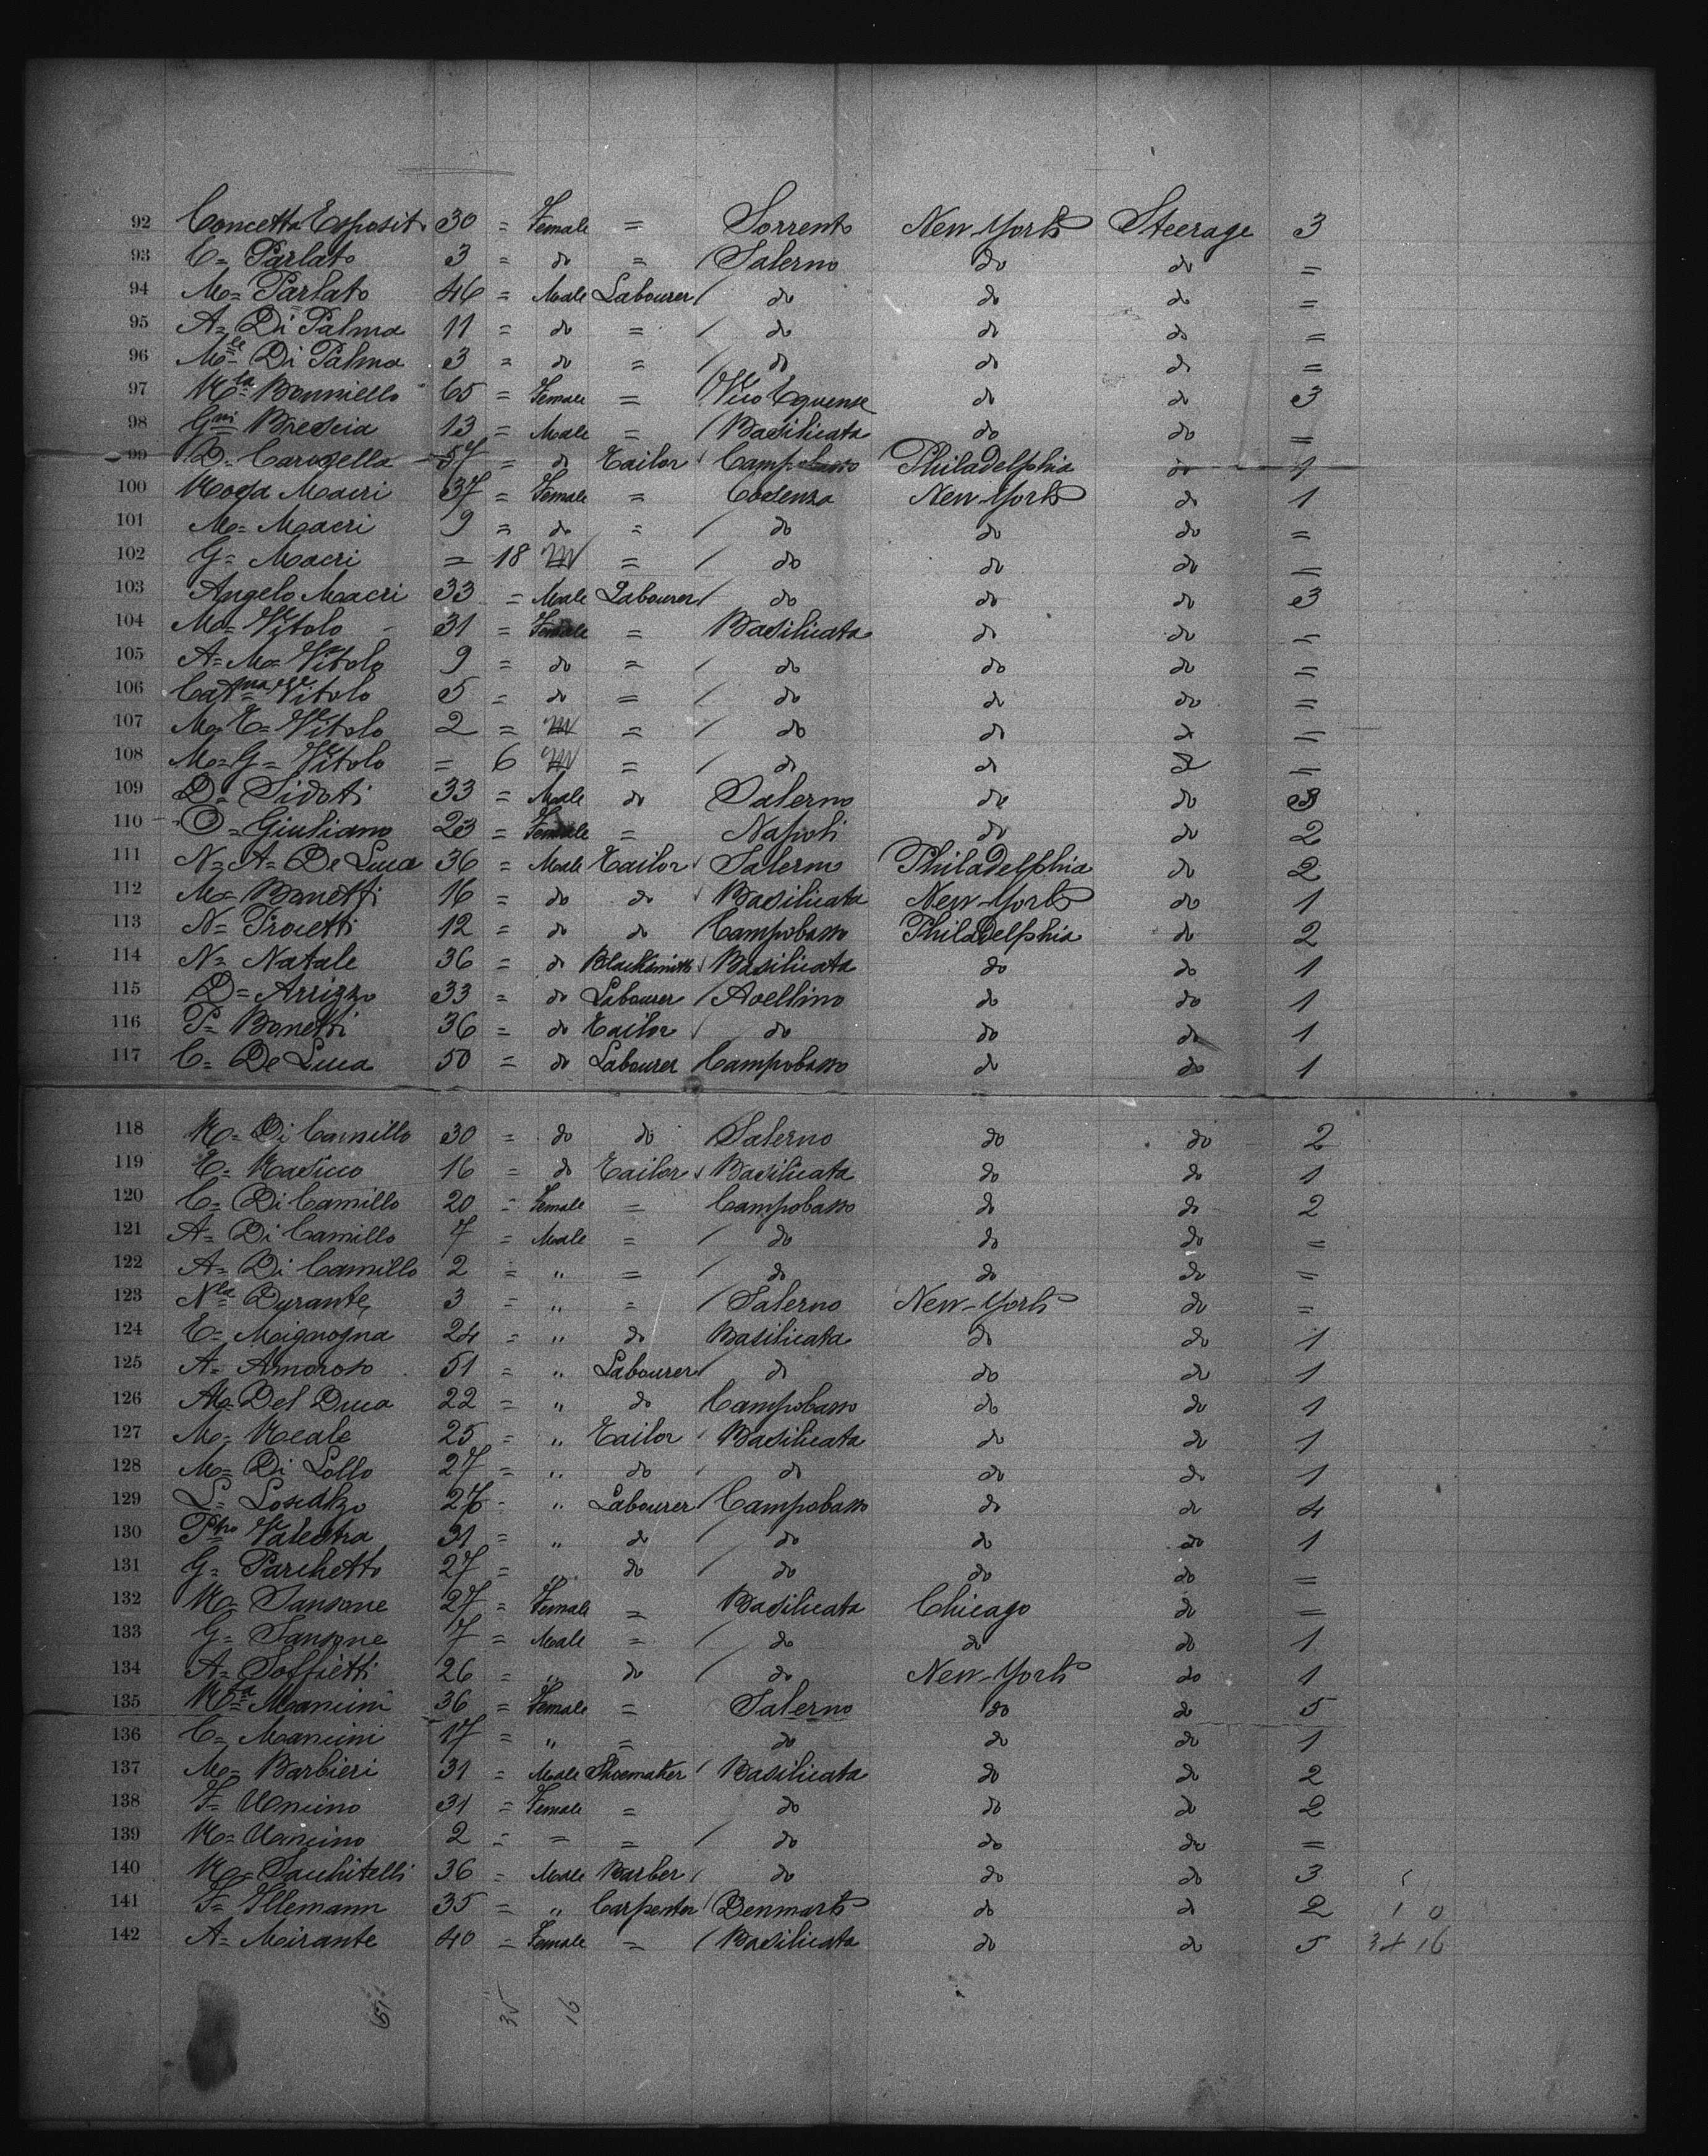 92 Concetta Esposito 30 = Female = Sorrento New-York Steerage 3
93 C= Parlato 3 = do = / Salerno do do =
94 M= Parlato 46 = Male Labourer / do do do =
95 A= Di Palma 11 = do = / do do do =
96 M=le Di Palma 3 = do = / do do do =
97 65 = Female = Vico Equense do do 3
98 Gni Brescia 13 = Male = / Basilicata do do =
99 D= Carosella 57 = do Tailor Campobasso Philadelphia do 1
100 Rosa Macri 37 = Female = Cosenza New-York do 1
101 M= Macri 9 = do = / do do do =
102 G= Macri = 18 = / do do do =
103 Angelo Macri 33 = Male Labourer / do do do 3
104 M= Vitolo 31 = Female = Basilicata do do =
105 A= M= Vitolo 9 = do = / do do do =
106 Vitolo 5 = do = / do do do =
107 M= C= Vitolo 2 = = / do do do =
108 M= G= Vitolo = 6 = / do do do =
109 D= Sidoti 33 = Male do Salerno do do 3
110 O= Giuliano 23 = Female = Napoli do do 2
111 N= A= De Luca 36 = Male Tailor Salerno Philadelphia do 2
112 M= Bonetti 16 = do do Basilicata New-York do 1
113 N= 12 = do do Campobasso Philadelphia do 2
114 N= Natale 36 = do Blacksmith Basilicata do do 1
115 D= Arrizzo 33 = do Labourer / Avellino do do 1
116 P= Bonetti 36 = do Tailor do do do 1
117 C= De Luca 50 = do Labourer Campobasso do do 1
118 R= Di Camillo 30 = do do / Salerno do do 2
119 Rasicco 16 = do Tailor Basilicata do do 1
120 C= Di Camillo 20 = Female = Campobasso do do 2
121 A= Di Camillo 7 = Male = / do do do =
122 A= Di Camillo 2 = " = / do do do =
123 Nla Durante 3 = " = / Salerno New-York do =
124 E= Mignogna 24 = " do Basilicata do do 1
125 A= Amoroso 51 = " Labourer / do do do 1
126 M= Del Duca 22 = " do Campobasso do do 1
127 M= Reale 25 = " Tailor Basilicata do do 1
128 M= Di Lollo 27 = " do do do do 1
129 L= Loscalzo = " Labourer / Campobasso do do 4
130 31 = " do / do do do 1
131 G= Parchetto 27 = " do / do do do =
132 R= Sansone 27 = Female = Basilicata Chicago do =
133 G= Sansone 7 = Male = / do do do 1
134 A= Soffietti 26 = " do / do New-York do 1
135 Mancini 36 = Female = Salerno do do 5
136 C= Mancini 17 = " = do do do 1
137 M= Barbieri 31 = Male Shoemaker / Basilicata do do 2
138 F= 31 = Female = do do do 2
139 R= 2 = = = / do do do =
140 R= Sacchitelli 36 = Male Barber / do do do 3
141 F= Illemann 35 = " Carpenter / Denmark do do 2 1 0
142 A= Mirante 40 = Female = / Basilicata do do 5 34 16
51 35 16